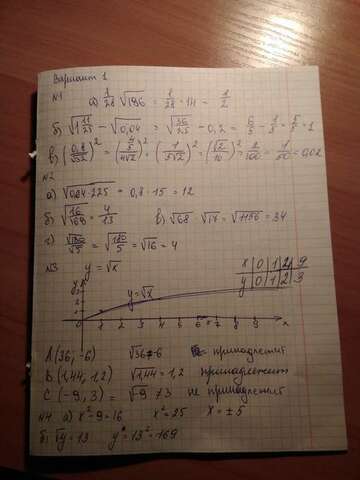 Вариант 1
№1 а) 1/28 √196 = 1/28 · 14 = 1/2
б) √1 11/25 − √0,04 = √36/25 − 0,2 = 6/5 − 1/5 = 5/5 = 1
в) (0,8/√32)² = (4/5 / 4√2)² = (1/5√2)² = (√2/10)² = 2/100 = 1/50 = 0,02
№2
а) √0,64·225 = 0,8 · 15 = 12
б) √16/169 = 4/13 в) √68 · √17 = √1156 = 34
г) √80/√5 = √80/5 = √16 = 4
№3 y = √x
x 0 1 4 9
y 0 1 2 3
y=√x
1 2 3 4 5 6 7 8 9 x
A (36, -6) √36 ≠ -6 принадлежит
B (1,44, 1,2) √1,44 = 1,2 принадлежит
C (-9, 3) √-9 ≠ 3 не принадлежит
№4 а) x² - 9 = 16 x² = 25 x = ±5
б) √y = 13 y = 13² = 169